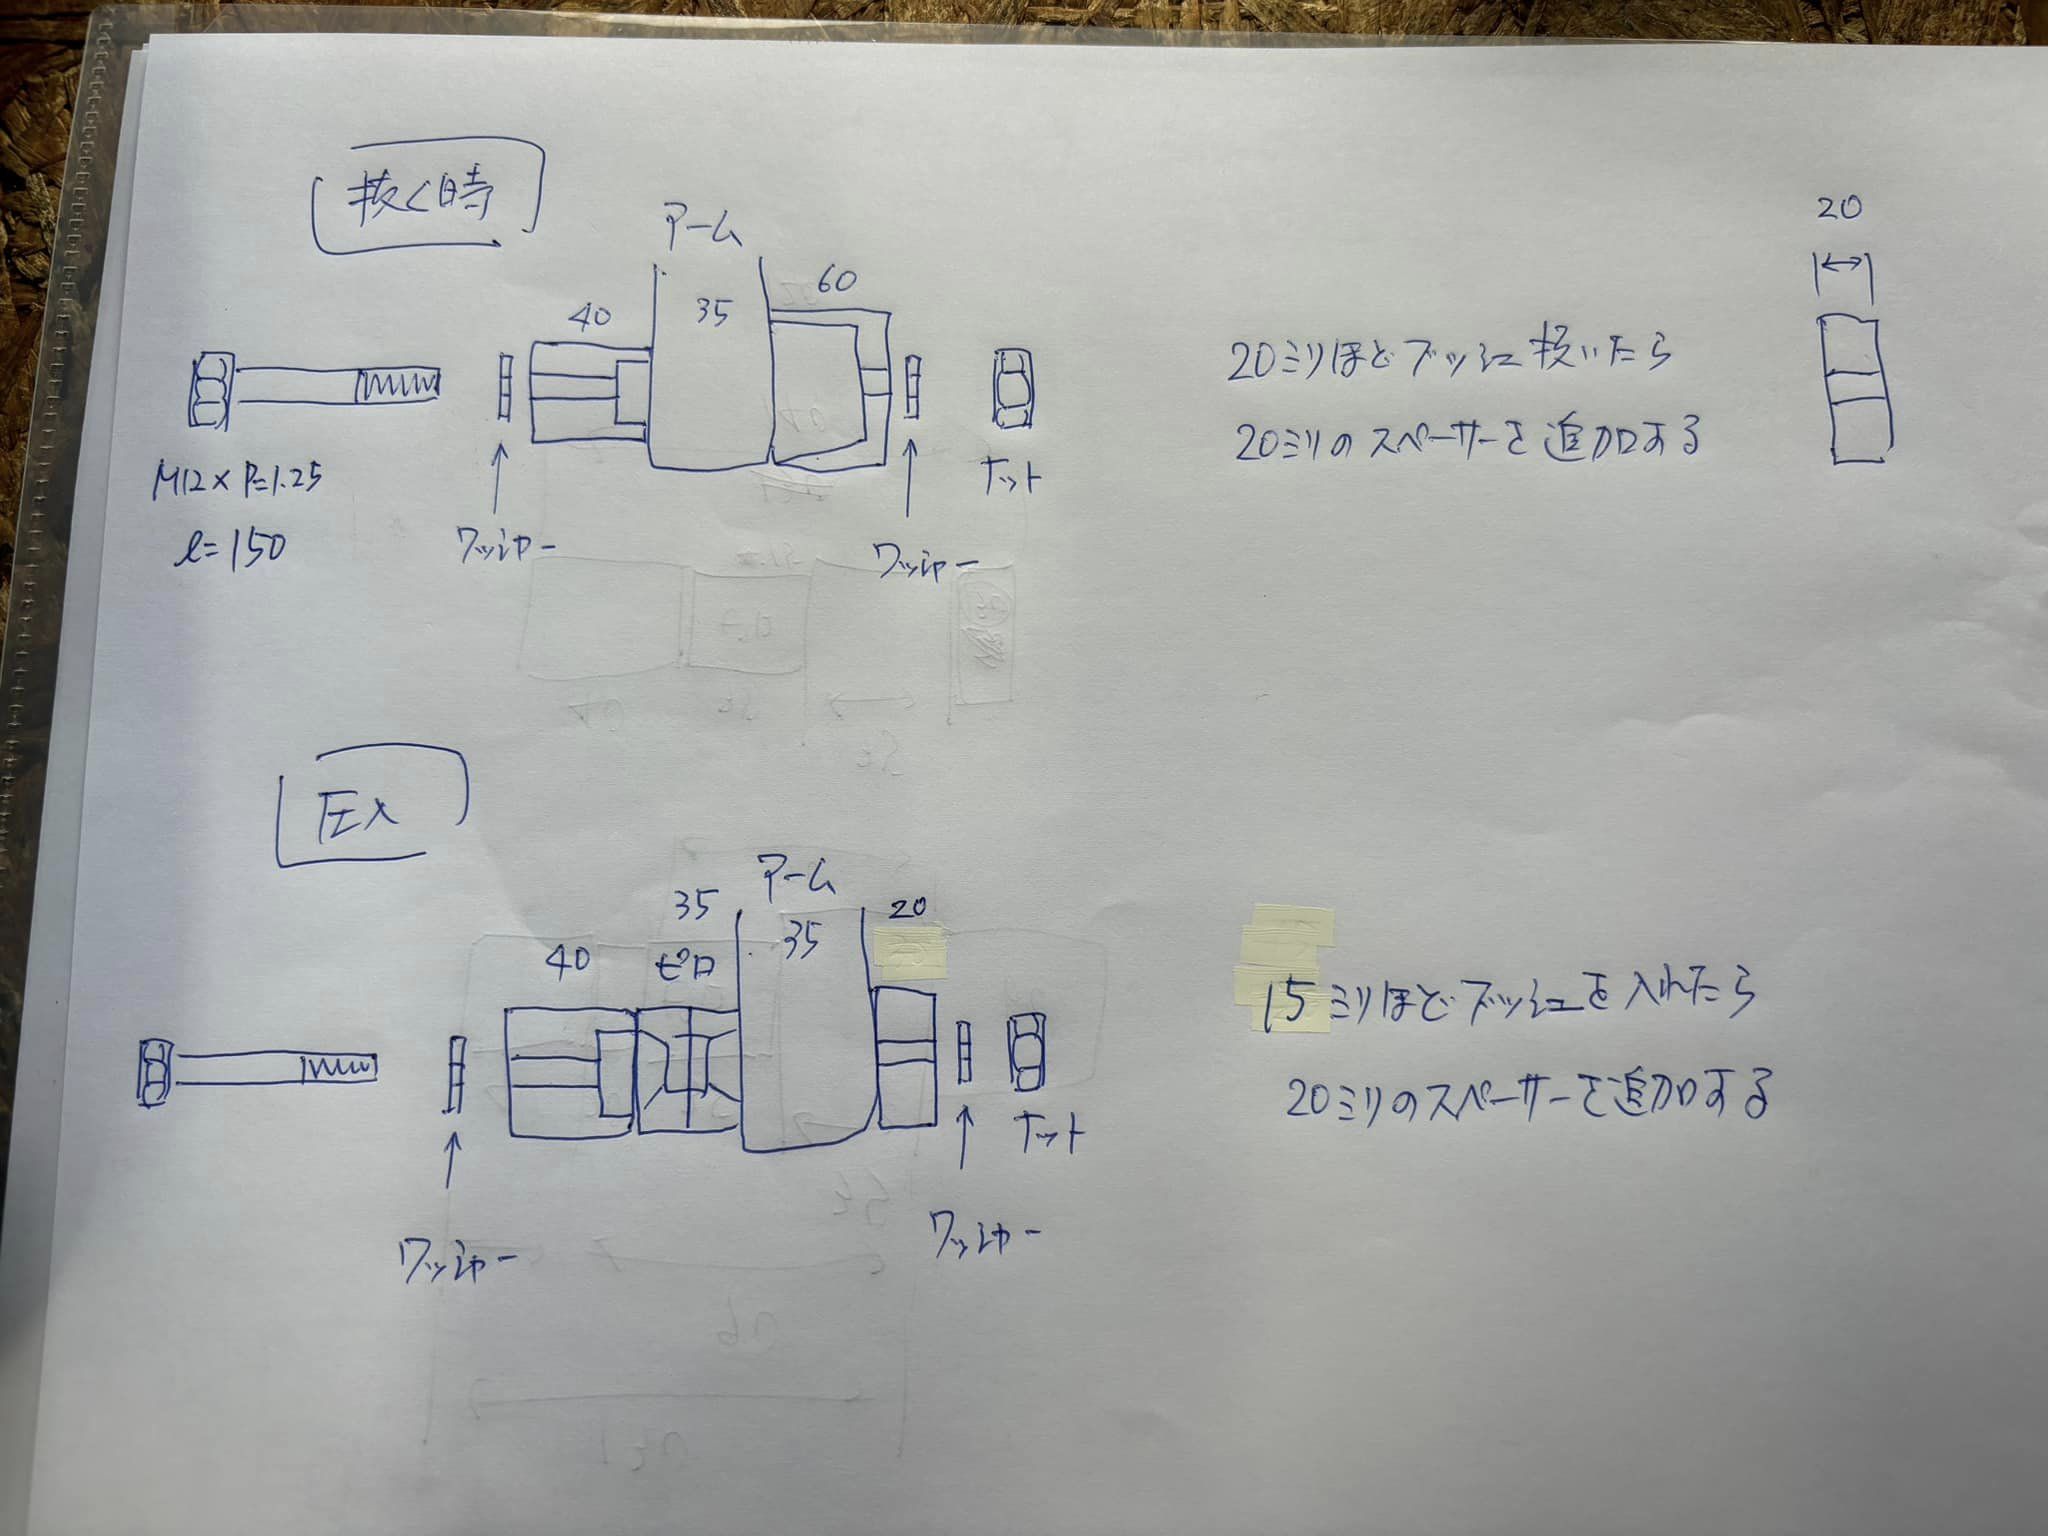 抜く時
アーム
60
40
35
20
M12 × P=1.25
l=150
ワッシャー
ワッシャー
ナット
20ミリほどブッシュ抜いたら
20ミリのスペーサーを追加する
圧入
アーム
35
20
40
ピロ
35
ワッシャー
ワッシャー
ナット
15ミリほどブッシュを入れたら
20ミリのスペーサーを追加する